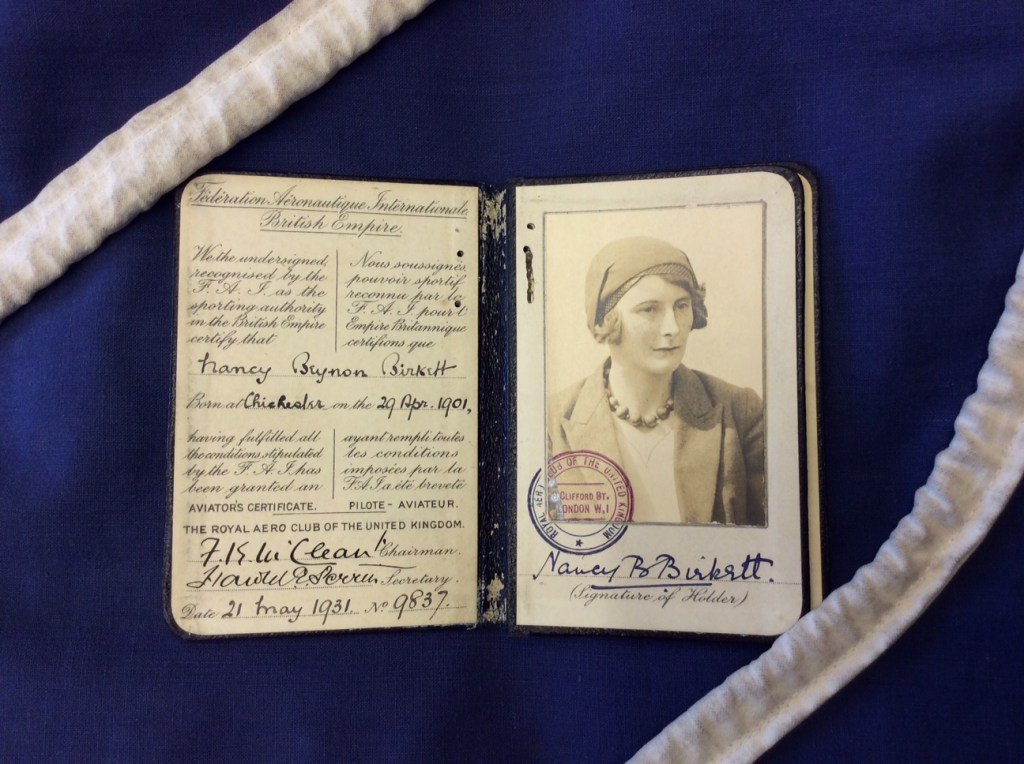 Fédération Aéronautique Internationale
British Empire.
We the undersigned
recognised by the
F. A. I. as the
sporting authority
in the British Empire
certify that
Nous soussignés
pouvoir sportif
reconnu par la
F. A. I pour l'
Empire Britannique
certifions que
Nancy Beynon Birkett
Born at Chichester on the 29 Apr. 1901,
having fulfilled all
the conditions stipulated
by the F. A. I. has
been granted an
AVIATOR'S CERTIFICATE.
ayant rempli toutes
les conditions
imposées par la
F A I a été breveté
PILOTE - AVIATEUR.
THE ROYAL AERO CLUB OF THE UNITED KINGDOM.
F. K. McClean Chairman.
Harold E. Perrin Secretary.
Date 21 May 1931. No 9837.
ROYAL AERO CLUB OF THE UNITED KINGDOM
3 CLIFFORD ST.
LONDON W,1
Nancy B Birkett.
(Signature of Holder)